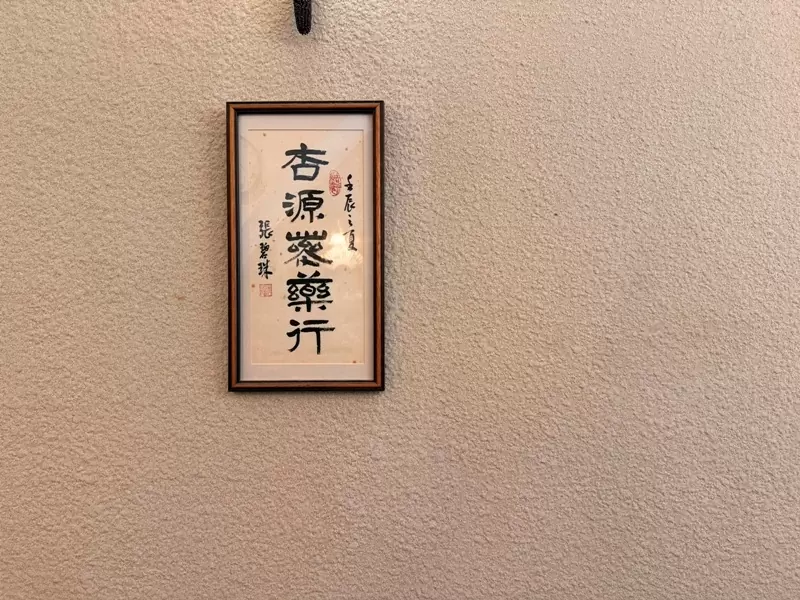 壬辰之夏
杏源蔘藥行
張碧珠